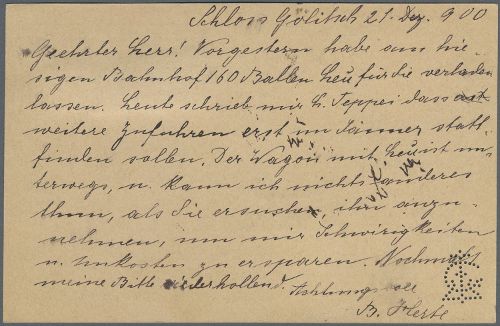 Schloss Golitsch 21. Dez. 900
Geehrter Herr! Vorgestern habe am hie-
sigen Bahnhof 160 Ballen Heu für Sie verladen
lassen. Heute schrieb mir H. Teppei dass
weitere Zufuhren erst im Jänner statt-
finden sollen. Der Wagon mit Heu ist un-
terwegs, u. kann ich nichts anderes
thun, als Sie ersuchen, ihn anzu-
nehmen, um mir Schwirigkeiten
u. Unkosten zu ersparen. Nochmals
meine Bitte wiederhollend. Achtungsvoll
B. Herbe